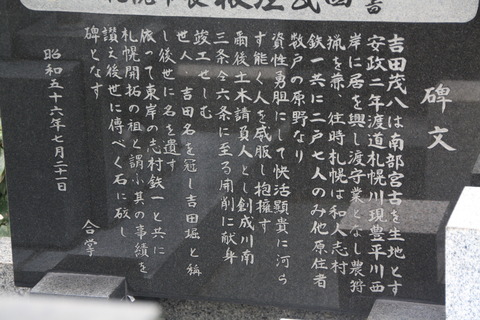 碑文
吉田茂八は南部宮古を生地とす
安政二年渡道札幌川現豊平川西
岸に居を興し渡守業となし農狩
猟を兼、往時札幌は和人志村
鉄一共に二戸七人のみ他原住者
数戸の原野なり
資性勇胆にして快活顕貴に河ら
ず能く人を威服し抱擁す
爾後土木請負人とし創成川南
三条全六条に至る開削に献身
竣工せしむ
世人、吉田名を冠し吉田堀と称
し後世に名を遺す
依って東岸の志村鉄一と共に
札幌開拓の祖と謂ふ其の事績を
讃え後世に傳べく石に刻し
碑となす
昭和五十六年七月二十一日
合掌